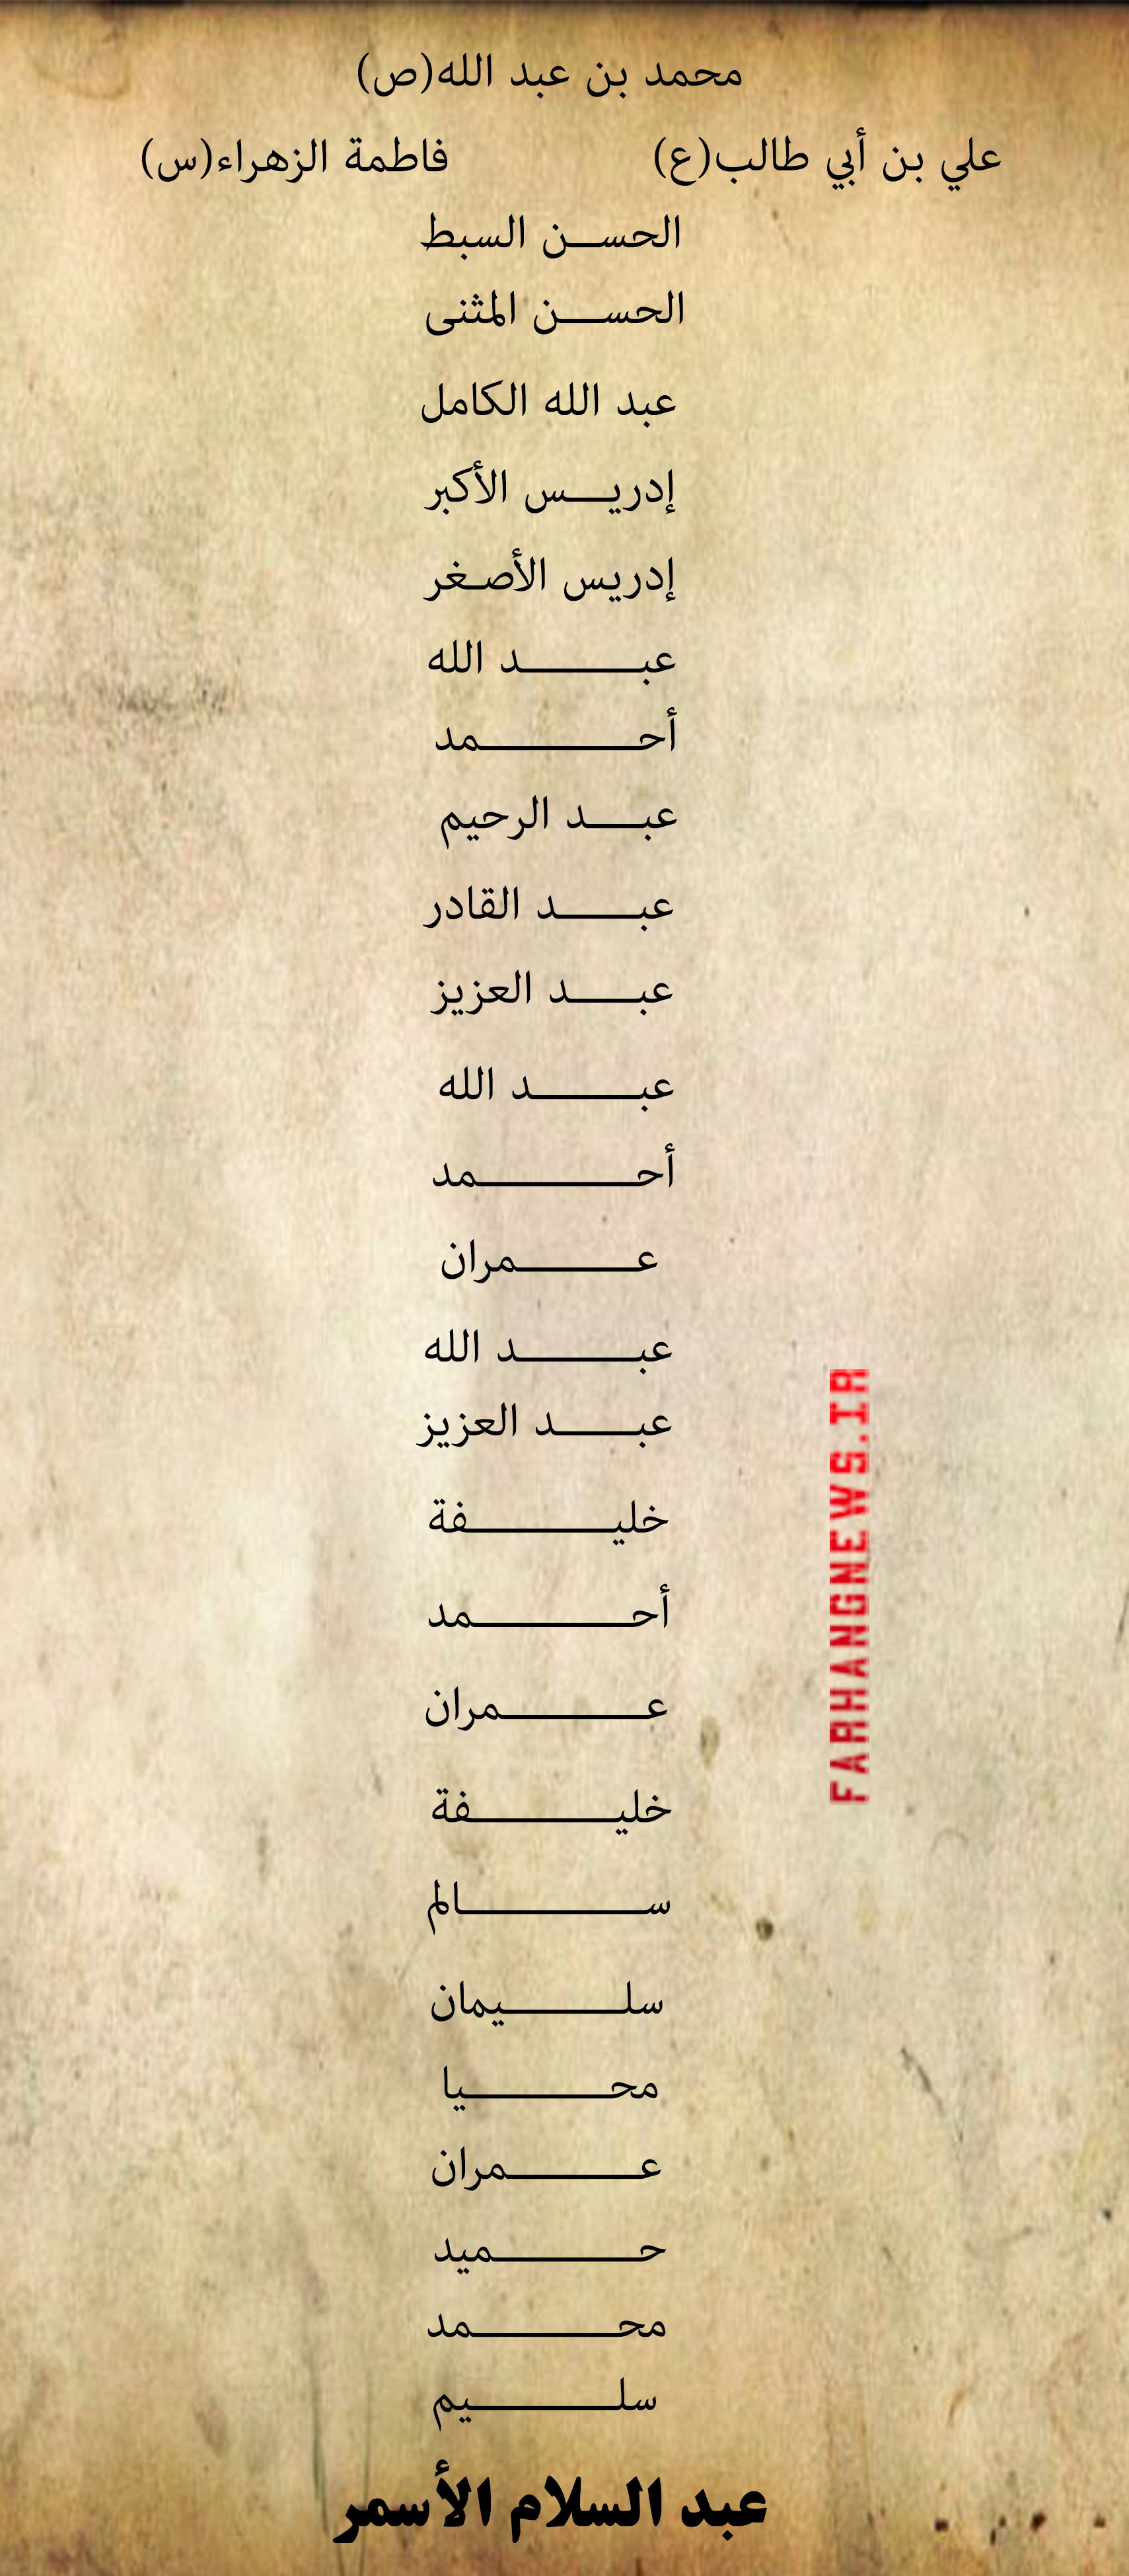 محمد بن عبد الله(ص)
علي بن أبي طالب(ع) فاطمة الزهراء(س)
الحسـن السبط
الحسـن المثنى
عبد الله الكامل
إدريـس الأكبر
إدريس الأصـغر
عبـد الله
أحـمد
عبـد الرحيم
عبـد القادر
عبـد العزيز
عبـد الله
أحـمد
عـمران
عبـد الله
عبـد العزيز
خليـفة
أحـمد
عـمران
خليـفة
سـالم
سلـيمان
محـيا
عـمران
حـميد
محـمد
سلـيم
عبد السلام الأسمر
FARHANGNEWS.IR